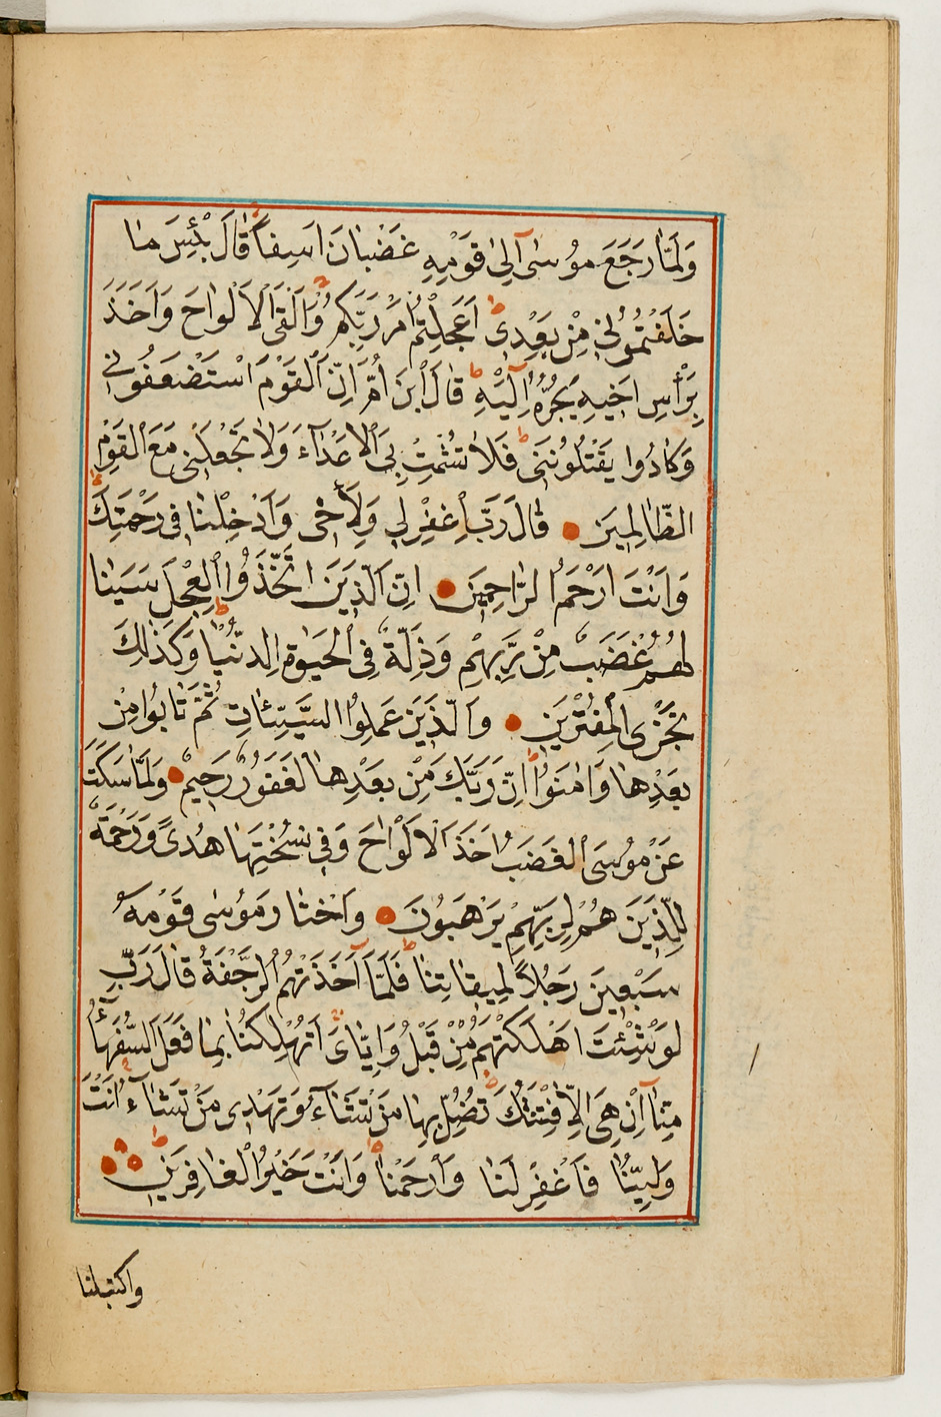 وَلَمَّا رَجَعَ مُوسٰى اِلٰى قَوْمِهِ غَضْبَانَ اَسِفاً قَالَ بِئْسَ مَا
خَلَفْتُمُونِى مِنْ بَعْدِى اَعَجِلْتُمْ اَمْرَ رَبِّكُمْ وَاَلْقَى الْاَلْوَاحَ وَاَخَذَ
بِرَأْسِ اَخِيهِ يَجُرُّهُ اِلَيْهِ قَالَ ابْنَ اُمَّ اِنَّ الْقَوْمَ اسْتَضْعَفُونِى
وَكَادُوا يَقْتُلُونَنِى فَلَا تُشْمِتْ بِىَ الْاَعْدَآءَ وَلَا تَجْعَلْنِى مَعَ الْقَوْمِ
الظَّالِمِينَ قَالَ رَبِّ اغْفِرْ لِى وَلِاَخِى وَاَدْخِلْنَا فِى رَحْمَتِكَ
وَاَنْتَ اَرْحَمُ الرَّاحِمِينَ اِنَّ الَّذِينَ اتَّخَذُوا الْعِجْلَ سَيَنَا
لُهُمْ غَضَبٌ مِنْ رَبِّهِمْ وَذِلَّةٌ فِى الْحَيٰوةِ الدُّنْيَا وَكَذٰلِكَ
نَجْزِى الْمُفْتَرِينَ وَالَّذِينَ عَمِلُوا السَّيِّئَاتِ ثُمَّ تَابُوا مِنْ
بَعْدِهَا وَاٰمَنُوا اِنَّ رَبَّكَ مِنْ بَعْدِهَا لَغَفُورٌ رَحِيمٌ وَلَمَّا سَكَتَ
عَنْ مُوسَى الْغَضَبُ اَخَذَ الْاَلْوَاحَ وَفِى نُسْخَتِهَا هُدًى وَرَحْمَةٌ
لِلَّذِينَ هُمْ لِرَبِّهِمْ يَرْهَبُونَ وَاخْتَارَ مُوسٰى قَوْمَهُ
سَبْعِينَ رَجُلاً لِمِيقَاتِنَا فَلَمَّا اَخَذَتْهُمُ الرَّجْفَةُ قَالَ رَبِّ
لَوْ شِئْتَ اَهْلَكْتَهُمْ مِنْ قَبْلُ وَاِيَّاىَ اَتُهْلِكُنَا بِمَا فَعَلَ السُّفَهَآءُ
مِنَّا اِنْ هِىَ اِلَّا فِتْنَتُكَ تُضِلُّ بِهَا مَنْ تَشَآءُ وَتَهْدِى مَنْ تَشَآءُ اَنْتَ
وَلِيُّنَا فَاغْفِرْ لَنَا وَارْحَمْنَا وَاَنْتَ خَيْرُ الْغَافِرِينَ
واكتب لنا